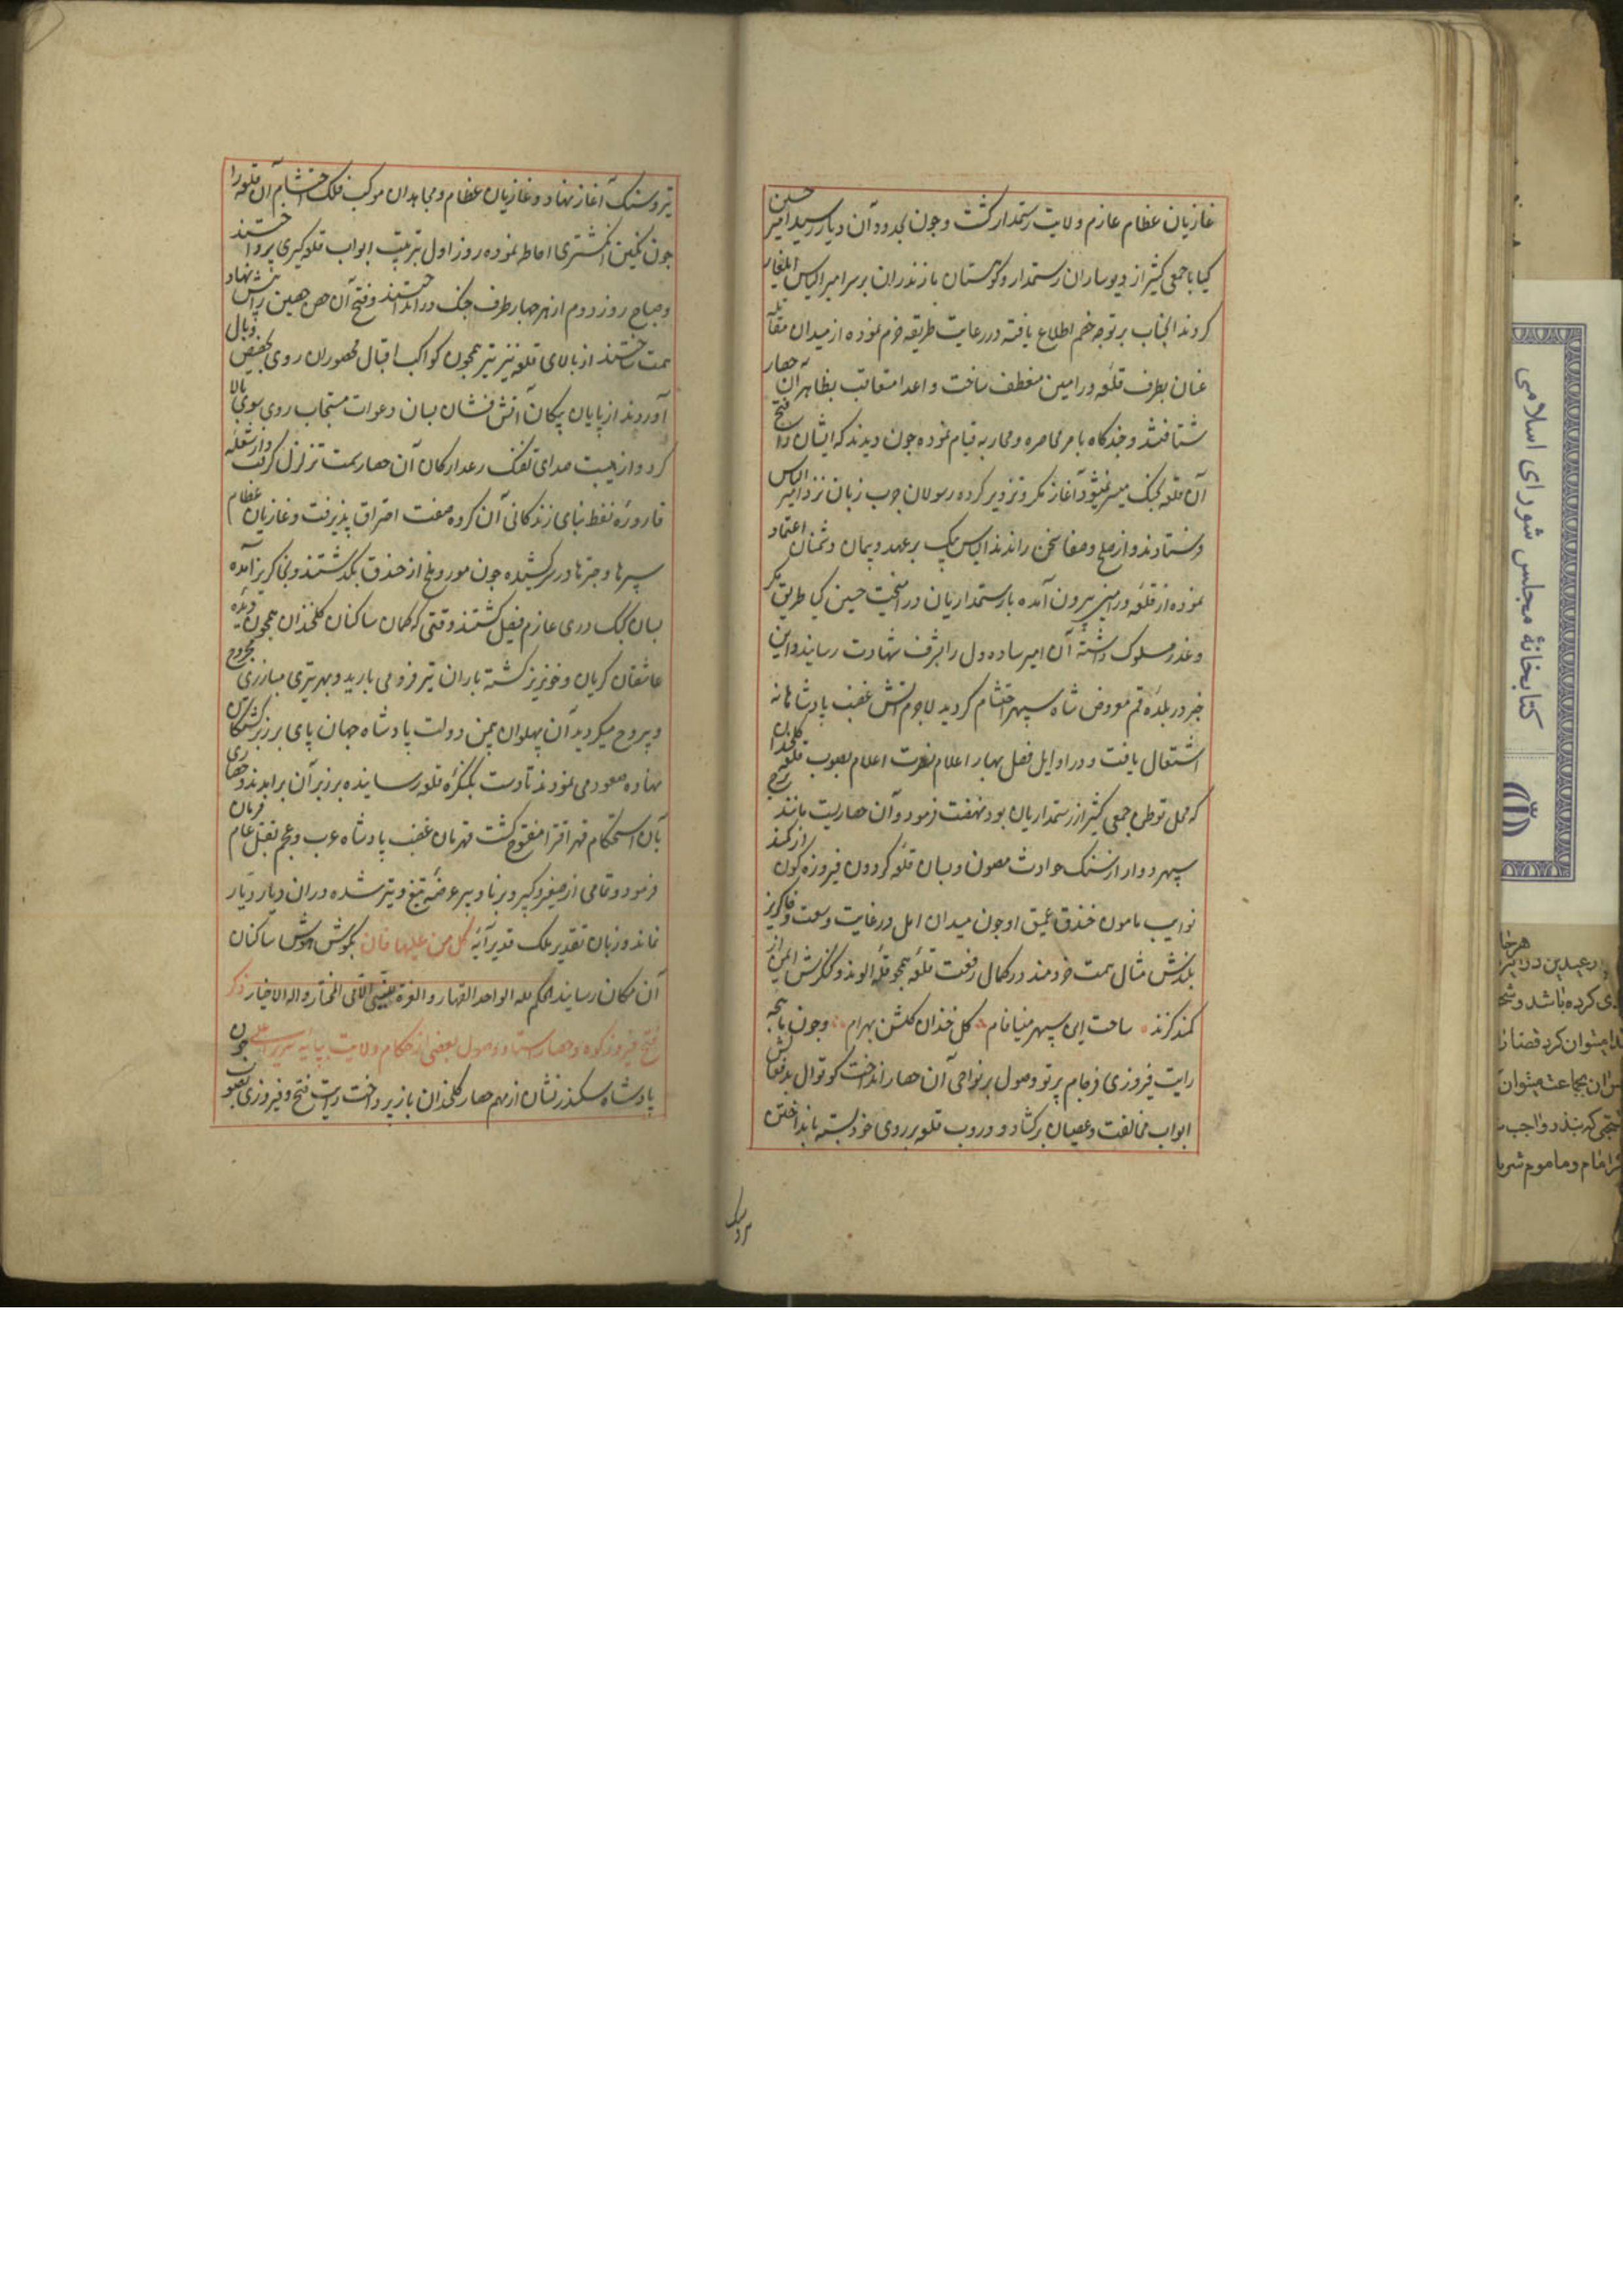 غازیان عظام عازم ولایت رستمدار کشت و چون بحدود آن دیار رسید امیر حسین
کیا با جمعی کثیر از دیوساران رستمدار و کوهستان مازندران بر سر امیر الیاس ایلغار
کردند انجناب بر توجه خصم اطلاع یافته در رعایت طریقه حزم نموده از میدان مقابله
عنان بطرف قلعه ورامین منعطف ساخت و اعدا متعاقب بظاهر آن حصار
شتافتند و چندکاه بامر محاصره و محاربه قیام نموده چون دیدند که ایشان را فتح
آن قلعه بجنک میسر نمیشود آغاز مکر و تزویر کرده رسولان چرب زبان نزد امیر الیاس
فرستادند و از صلح و صفا سخن راندند الیاس بیک بر عهد و پیمان دشمنان اعتماد
نموده از قلعه ورامین بیرون آمده با رستمداریان در آمیخت حسین کیا طریق مکر
و غدر مسلوک داشته آن امیر ساده دل را بشرف شهادت رسانید و این
خبر در بلده قم معروض شاه سپهر احتشام کردید لاجرم آتش غضب پادشاهانه
اشتعال یافت و در اوایل فصل بهار اعلام نصرت اعلام بصوب قلعه کلخندان
که محل توطن جمعی کثیر از رستمداریان بود نهضت فرمود و آن حصاریست مانند برج
سپهر دوار از سنک حوادث مصون و بسان قلعه کردون فیروزه کون از کمند
نوایب مامون خندق عمیق او چون میدان امل در غایت وسعت و خاکریز
بلندش مثال همت خردمند در کمال رفعت قلعه همچو قله الوند و کنکرش ایمن از
کمند کزند ساحت این سپهر مینا فام کل خندان کلشن بهرام و چون ماهچه
رایت فیروزی فرجام پرتو وصول بر نواحی آن حصار انداخت کوتوال بد فعالش
ابواب مخالفت و عصیان برکشاد و دروب قلعه بر روی خود بسته بانداختن
تیر و سنک آغاز نهاد و غازیان عظام و مجاهدان موکب فلک احتشام آن قلعه را
چون نکین انکشتری احاطه نموده روز اول بترتیب ابواب قلعه کیری پرداختند
و صباح روز دوم از هر چهار طرف جنک در انداختند و فتح آن حصن حصین را پیش نهاد
همت ساختند از بالای قلعه نیز تیر همچون کواکب اقبال محصوران روی بحضیض وبال
آوردند از پایان پیکان آتش فشان بسان دعوات مستجاب روی بسوی بالا
کرد و از هیبت صدای تفنک رعد ارکان آن حصار سمت تزلزل کرفت و از شعله
قاروره نفط بنای زندکانی آن کروه صفت احتراق پذیرفت و غازیان عظام
سپرها و چترها در سر کشیده چون مور و ملخ از خندق بکذشتند و بخاکریز آمده
بسان کبک دری عازم فصیل کشتند وقتی که کمان ساکنان کلخندان همچون دیده
عاشقان کریان و خونریز کشته باران تیر فرو می بارید و بهر تیری مبارزی مجروح
و بیروح میکردید آن پهلوان بیمن دولت پادشاه جهان پای بر زبر
نهاده صعود می نمودند تا دست بکنکره قلعه رسانیده بر زبر آن برامدند و حصاری
بآن استحکام قهرا قسرا مفتوح کشت قهرمان غضب پادشاه عرب و عجم بقتل عام فرمان
فرمود و تمامی از صغیر و کبیر و برنا و پیر عرضه تیغ و تیر شده در آن دیار دیار
نماند و زبان تقدیر ملک قدیر آیه کل من علیها فان بکوش هوش ساکنان
آن مکان رسانید الحکم لله الواحد القهار و العزة للنبی الامی المختار و اله الاخیار ذکر
فتح فیروزکوه و حصار استا و وصول بعضی از حکام ولایت بپایه سریر اعلی چون
پادشاه سکندر نشان از مهم حصار کلخندان باز پرداخت رایت فتح و فیروزی بصوب
تیر و سنک
کتابخانهٔ مجلس شورای اسلامی